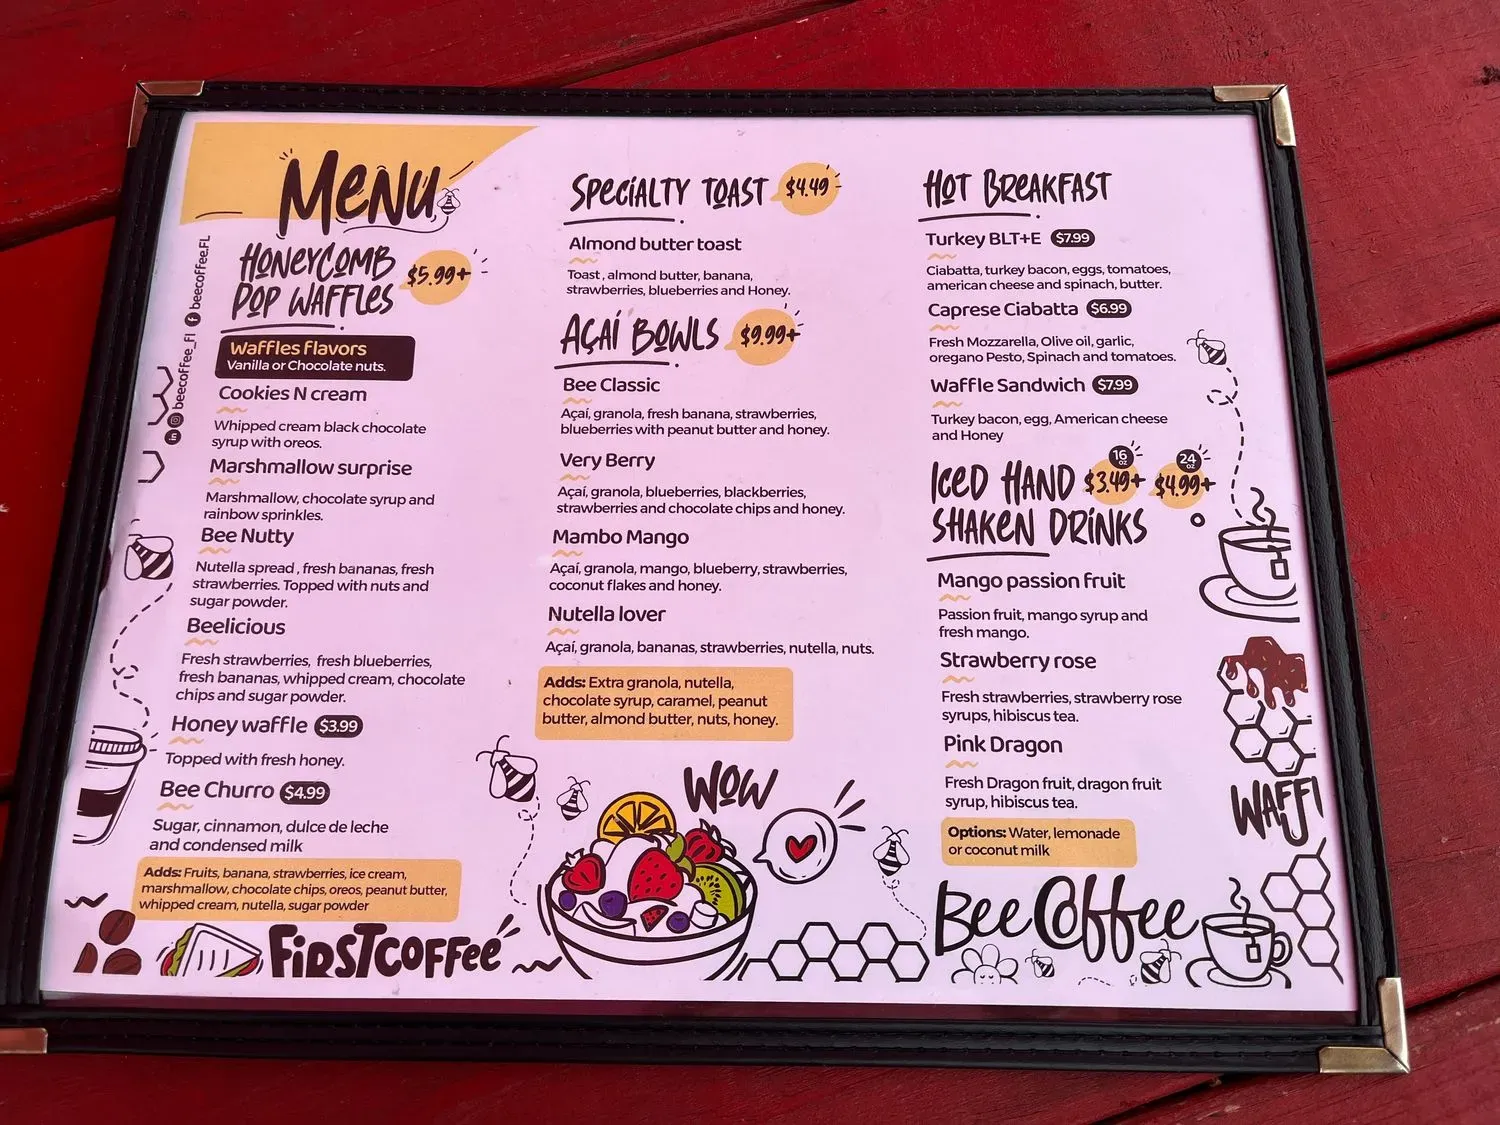 Menu
beecoffee.FL
beecoffee_Fl
Honeycomb
Pop Waffles
$5.99+
Waffles flavors
Vanilla or Chocolate nuts.
Cookies N cream
Whipped cream black chocolate
syrup with oreos.
Marshmallow surprise
Marshmallow, chocolate syrup and
rainbow sprinkles.
Bee Nutty
Nutella spread , fresh bananas, fresh
strawberries. Topped with nuts and
sugar powder.
Beelicious
Fresh strawberries, fresh blueberries,
fresh bananas, whipped cream, chocolate
chips and sugar powder.
Honey waffle $3.99
Topped with fresh honey.
Bee Churro $4.99
Sugar, cinnamon, dulce de leche
and condensed milk
Adds: Fruits, banana, strawberries, ice cream,
marshmallow, chocolate chips, oreos, peanut butter,
whipped cream, nutella, sugar powder
FIRSTCOFFee
Specialty Toast $4.49
Almond butter toast
Toast , almond butter, banana,
strawberries, blueberries and Honey.
Açaí Bowls $9.99+
Bee Classic
Açaí, granola, fresh banana, strawberries,
blueberries with peanut butter and honey.
Very Berry
Açaí, granola, blueberries, blackberries,
strawberries and chocolate chips and honey.
Mambo Mango
Açaí, granola, mango, blueberry, strawberries,
coconut flakes and honey.
Nutella lover
Açaí, granola, bananas, strawberries, nutella, nuts.
Adds: Extra granola, nutella,
chocolate syrup, caramel, peanut
butter, almond butter, nuts, honey.
WOW
Hot Breakfast
Turkey BLT+E $7.99
Ciabatta, turkey bacon, eggs, tomatoes,
american cheese and spinach, butter.
Caprese Ciabatta $6.99
Fresh Mozzarella, Olive oil, garlic,
oregano Pesto, Spinach and tomatoes.
Waffle Sandwich $7.99
Turkey bacon, egg, American cheese
and Honey
Iced Hand
Shaken Drinks
16 oz $3.49+
24 oz $4.99+
Mango passion fruit
Passion fruit, mango syrup and
fresh mango.
Strawberry rose
Fresh strawberries, strawberry rose
syrups, hibiscus tea.
Pink Dragon
Fresh Dragon fruit, dragon fruit
syrup, hibiscus tea.
Options: Water, lemonade
or coconut milk
WAFFl
Bee Coffee